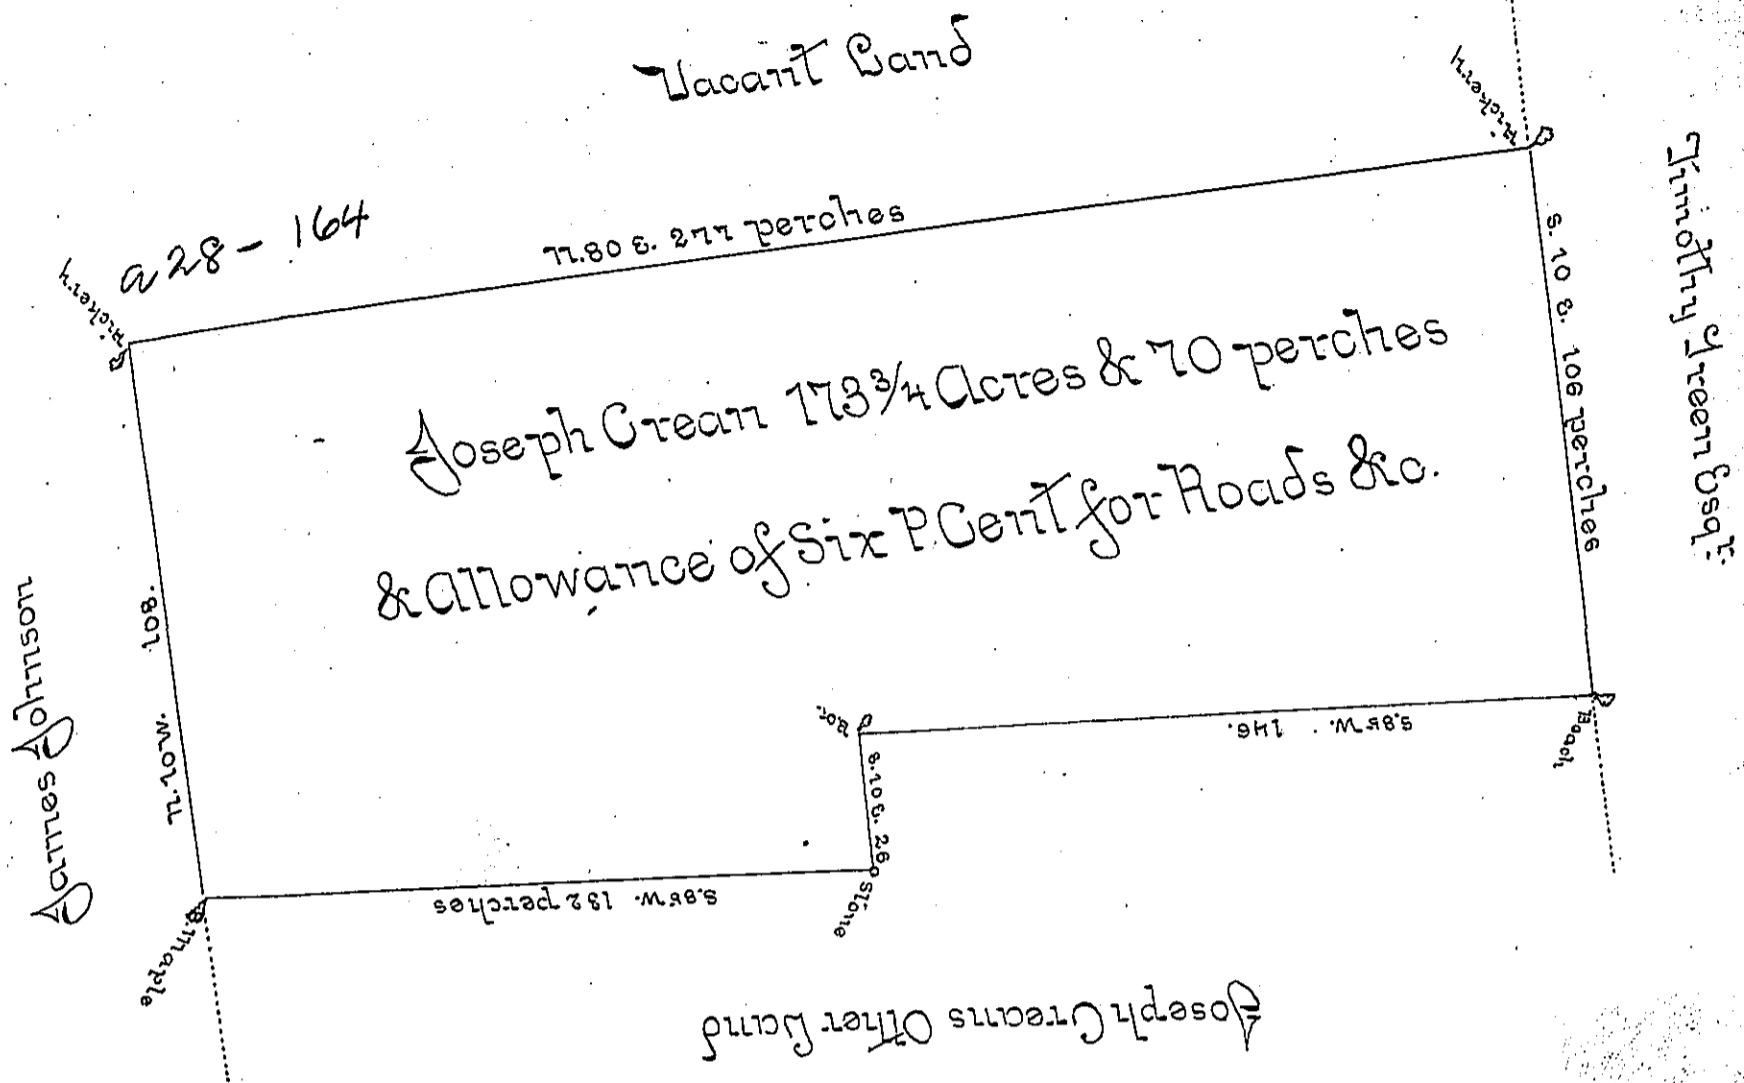 Vacant Land
Hickery
a28-164
N. 80 E. 277 perches
Hickery
S. 10 E. 106 perches
Timothy Green Esqr.
Joseph Crean 173¾ Acres & 70 perches
& Allowance of Six P Cent for Roads &c.
James Johnson
N. 10 W. 108.
S. 85 W. 146.
Beach
S. 10 E. 26
Stone
S. 85 W. 132 perches
Maple
Joseph Creans Other Land